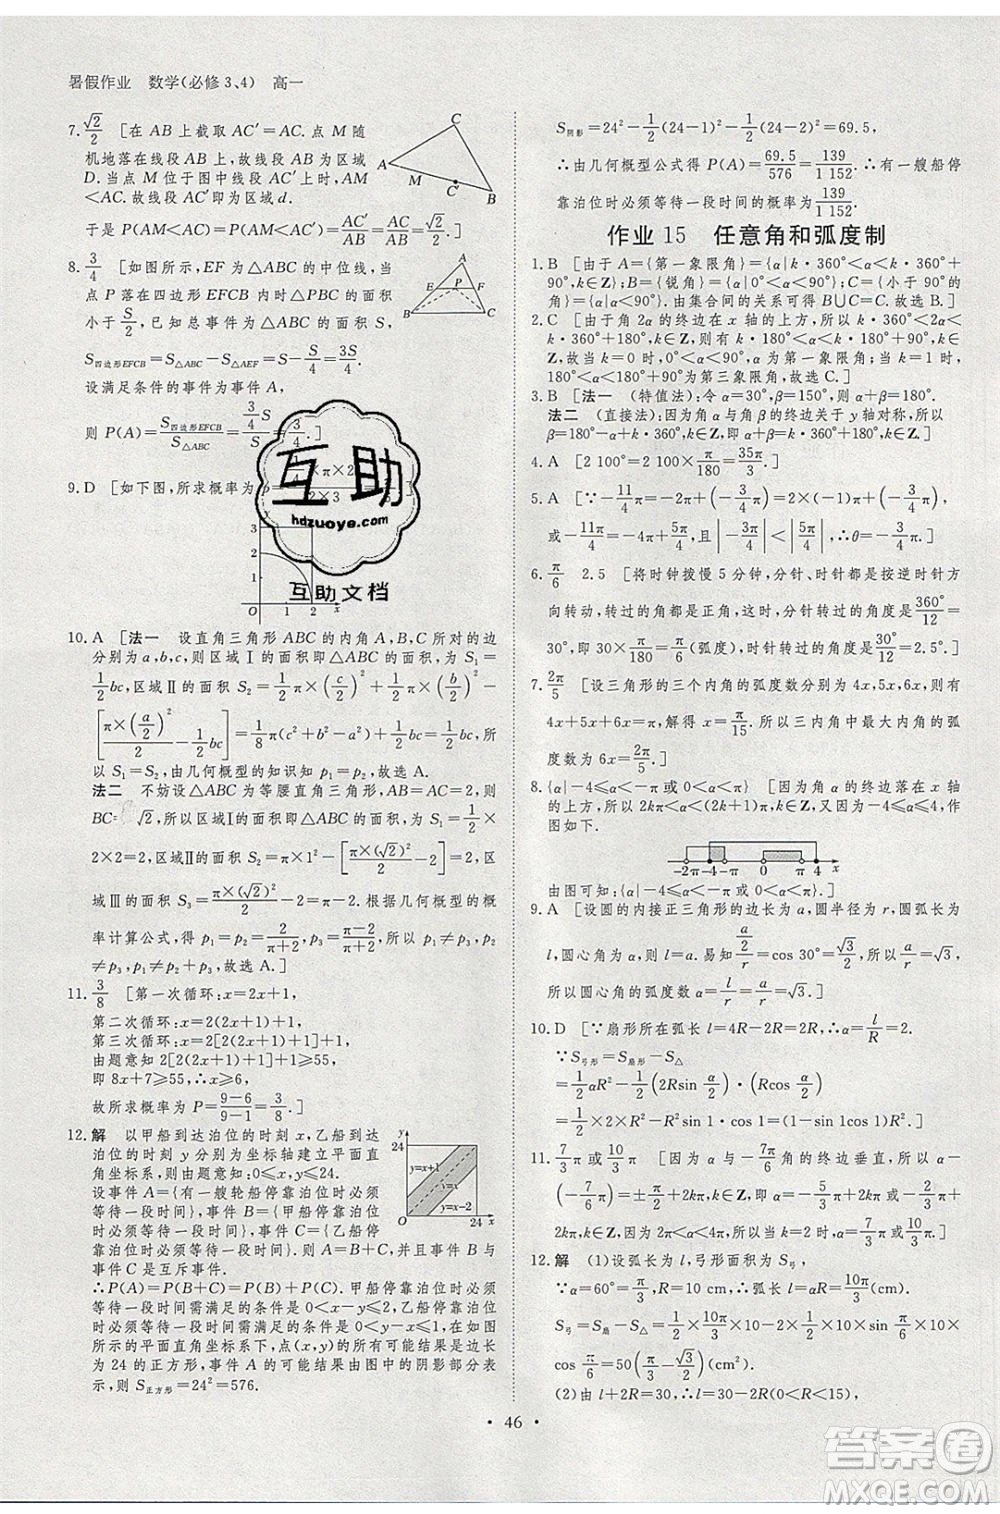 暑假作业 数学(必修3、4) 高一
7. √2/2 [在 AB 上截取 AC′=AC. 点 M 随
机地落在线段 AB 上,故线段 AB 为区域
D. 当点 M 位于图中线段 AC′上时,
AM<AC,故线段 AC′即为区域 d.
于是 P(AM<AC)=P(AM<AC′)=AC′/AB=AC/AB=√2/2.]
8. 3/4 [如图所示,EF 为△ABC 的中位线,当
点 P 落在四边形 EFCB 内时△PBC 的面积
小于 S/2,已知总事件为△ABC 的面积 S.
S四边形EFCB=S△ABC−S△AEF=S−S/4=3S/4.
设满足条件的事件为事件 A,
则 P(A)=S四边形EFCB/S△ABC=
9. D [如下图,所求概率为
10. A [法一 设直角三角形 ABC 的内角 A,B,C 所对的边
分别为 a,b,c,则区域Ⅰ的面积即△ABC 的面积 S₁=
1/2bc,区域Ⅱ的面积 S₂=1/2π×(c/2)²+1/2π×(b/2)²−
[π×(a/2)²/2−1/2bc]=1/8π(c²+b²−a²)+1/2bc=1/2bc,所
以 S₁=S₂,由几何概型的知识知 p₁=p₂,故选 A.
法二 不妨设△ABC 为等腰直角三角形,AB=AC=2,则
√2,所以区域Ⅰ的面积即△ABC 的面积 S₁=1/2
×2×2=2,区域Ⅱ的面积 S₂=π×1²−[π×(√2)²/2−2]=2,
区域Ⅲ的面积 S₃=π×(√2)²/2−2=π−2. 根据几何概型的概
率计算公式,得 p₁=p₂=2/(π+2),p₃=(π−2)/(π+2),所以 p₁≠p₃,p₂
≠p₃,p₁≠p₂+p₃,故选 A.]
11. 3/8 [第一次循环:x=2x+1,
第二次循环:x=2(2x+1)+1,
第三次循环:x=2[2(2x+1)+1]+1,
由题意知 2[2(2x+1)+1]+1≥55,
即 8x+7≥55,∴x≥6,
故所求概率为 P=(9−6)/(9−1)=3/8.]
12. 解 以甲船到达泊位的时刻 x,乙船到达
泊位的时刻 y 分别为坐标轴建立平面直
角坐标系,则由题意知:0≤x,y≤24.
设事件 A={有一艘轮船停靠泊位时必须
等待一段时间},事件 B={甲船停靠泊位
时必须等待一段时间},事件 C={乙船停
靠泊位时必须等待一段时间}.
则 A=B+C,并且事件 B 与事件
C 是互斥事件.
∴P(A)=P(B+C)=P(B)+P(C). 甲船停靠泊位时必须
等待一段时间需满足的条件是 0<x−y≤2,乙船停靠泊位
时必须等待一段时间需满足的条件是 0<y−x≤1,在如图
所示的平面直角坐标系下,点(x,y)的所有可能结果是边长
为 24 的正方形,事件 A 的可能结果由图中的阴影部分表
示,则 S正方形=24²=576.
S阴影=24²−1/2(24−1)²−1/2(24−2)²=69.5,
∴由几何概型公式得 P(A)=69.5/576=139/1 152. ∴有一艘船停
靠泊位时必须等待一段时间的概率为 139/1 152.
作业 15 任意角和弧度制
1. B [由于 A={第一象限角}={α|k·360°<α<k·360°+
90°,k∈Z};B={锐角}={α|0°<α<90°};C={小于 90°
的角}={α|α<90°}. 由集合间的关系可得 B∪C=C.故选 B.]
2. C [由于角 2α 的终边在 x 轴的上方,则 k·360°<2α<k
·360°+180°,k∈Z,则有 k·180°<α<k·180°+90°,k∈Z.
故当 k=0 时,0°<α<90°,α 为第一象限角;当 k=1 时,
180°<α<270°,α 为第三象限角. 故选 C.]
3. B [法一 (特值法):令 α=30°,β=150°,则 α+β=180°.
法二 (直接法):因为角 α 与角 β 的终边关于 y 轴对称,所以
β=180°−α+k·360°,k∈Z,即 α+β=k·360°+180°,k∈Z.]
4. A [2 100°=2 100×π/180=35π/3.]
5. A [∵−11/4π=−2π+(−3/4π)=2(−1)π+(−3/4π),
或−11π/4=−4π+5π/4,且|−3π/4|<|5π/4|,∴θ=−3π/4.]
6. π/6 2.5 [将时钟拨慢 5 分钟,分针、时针都是按逆时针方
向转动,转过的角都是正角,这时,分针转过的角度是 360°/12
=30°,即 30×π/180=π/6. 时针转过的角度是 30°/12=2.5°.]
7. 2π/5 [设三角形的三个内角的弧度数分别为 4x,5x,6x,则有
4x+5x+6x=π,解得 x=π/15. 所以三内角中最大内角的弧
度数为 6x=2π/5.]
8. {α|−4≤α≤−π 或 0≤α≤π} [因为 α 的终边落在 x 轴
的上方,所以 2kπ≤α≤2kπ+π(k∈Z),又−4≤α≤4,作
图如下.
由图可知:{α|−4≤α≤−π 或 0≤α≤π}.]
9. A [设圆的内接正三角形的边长为 a,圆半径为 r,圆弧长为
l,圆心角为 α,则 l=a. 因为 (a/2)/r=cos 30°=√3/2,所以 a/r=√3,
所以圆心角的弧度数 α=l/r=a/r=√3.]
10. D [∵扇形所在弧长 l=4R−2R=2R,∴α=l/R=2.
∵S弓形=S扇形−S△
=1/2αR²−1/2(2Rsin α/2)·(Rcos α/2)
=1/2×2×R²−1/2R²·2sin 1·cos 1=(1−sin 1cos 1)R².]
11. π/3 或 7π/3 [因为 α 与−π/6 的终边垂直,所以 α=−π/6+
π/2+2kπ 或 α=−π/6−π/2+2kπ,k∈Z,即 α=π/3+2kπ 或 α=−2π/3
+2kπ,k∈Z,因为 0<α<5π/2,所以 α=π/3 或 4π/3 或 7π/3.]
12. 解 (1)设弧长为 l,弓形面积为 S弓,
∵α=60°=π/3,R=10,∴弧长 l=αR=10π/3(cm).
S弓=S扇−S△=1/2×10π/3×10−1/2×2×10×sin π/6×10×
cos π/6=50(π/3−√3/2)(cm²).
(2)由 l+2R=30,∴l=30−2R,从而 0<R<15,
46
互助
hdzuoye.com
互助文档
答案圈
MXQE.COM